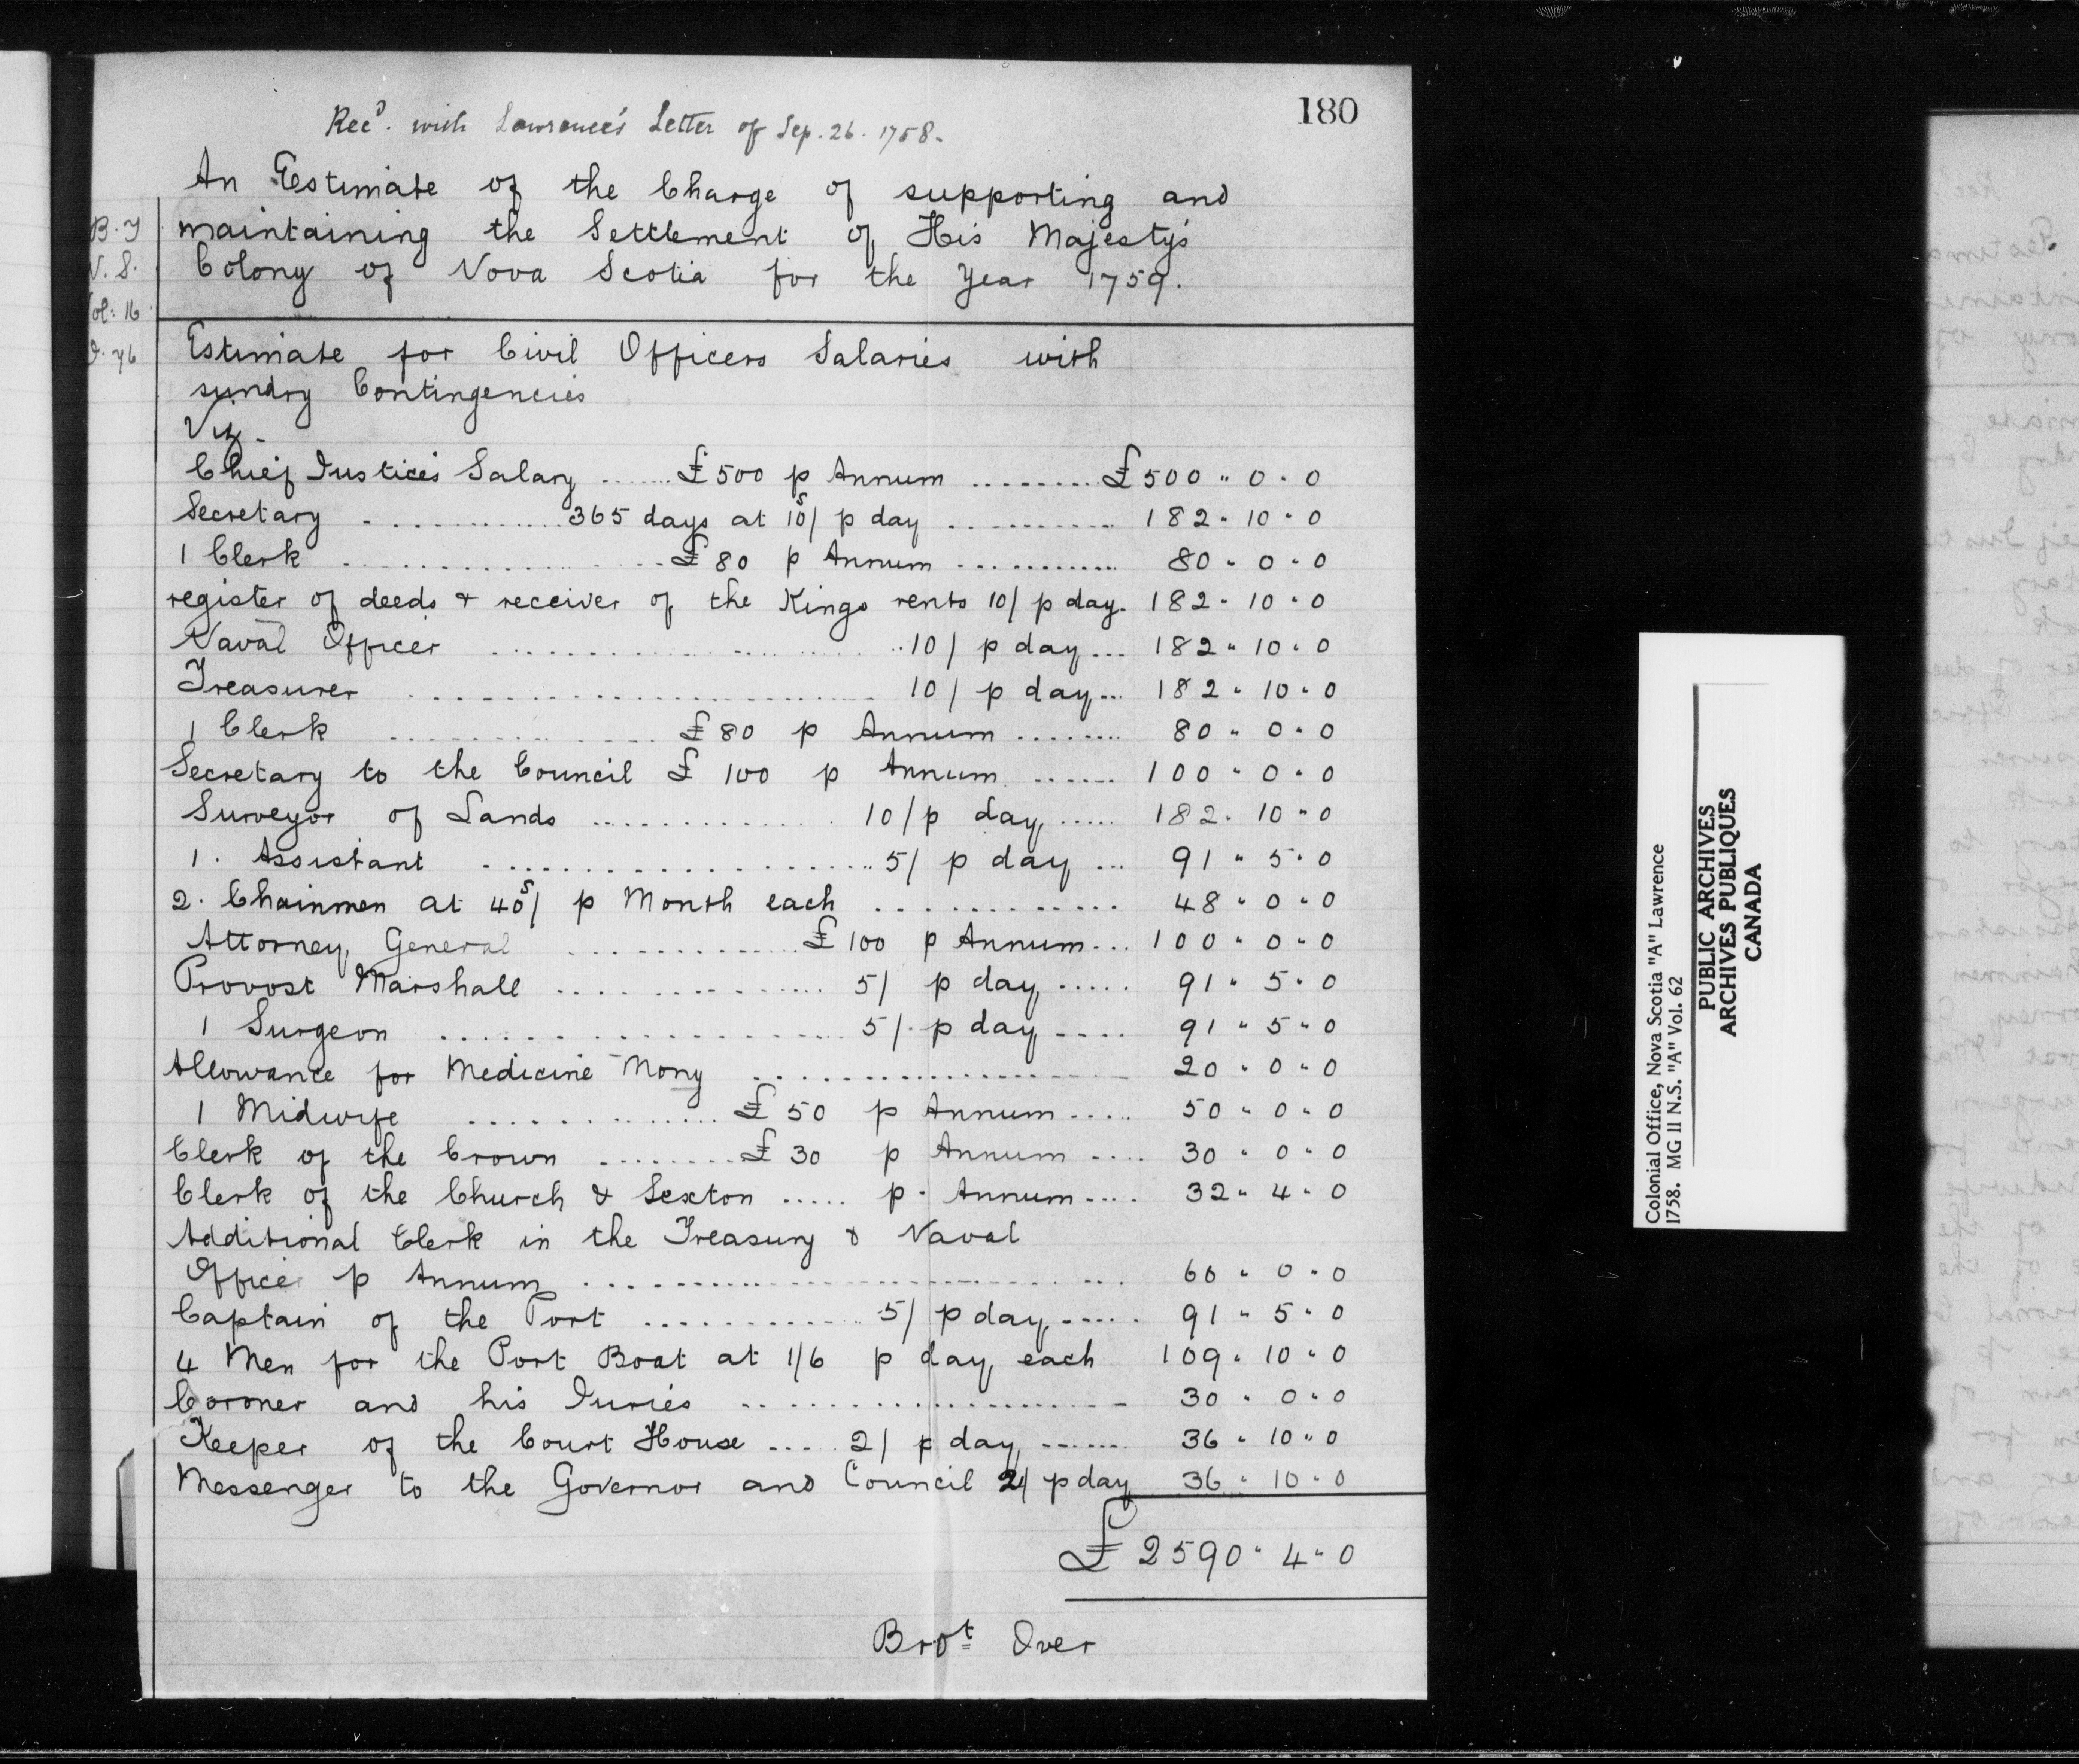 180
Recd. with Lawrence's Letter of Sep. 26. 1758.
An Estimate of the Charge of supporting and
maintaining the Settlement of His Majesty's
Colony of Nova Scotia for the Year 1759.
B. T
N. S.
ol: 16
76
Estimate for Civil Officers Salaries with
sundry Contingencies
Viz.
Chief Justices Salary ....... £500 p Annum ......... £500 " 0 " 0
Secretary ............. 365 days at 10s/ p day ........... 182 " 10 " 0
1 Clerk ................ £80 p Annum ............ 80 " 0 " 0
register of deeds & receiver of the Kings rents 10/ p day. 182 " 10 " 0
Naval Officer .................... 10/ p day... 182 " 10 " 0
Treasurer ........................ 10/ p day... 182 " 10 " 0
1 Clerk .............. £80 p Annum ........ 80 " 0 " 0
Secretary to the Council £ 100 p Annum ...... 100 " 0 " 0
Surveyor of Lands ............. 10/ p day ..... 182 " 10 " 0
1. Assistant .................... 5/ p day ... 91 " 5 " 0
2. Chainmen at 40s/ p Month each ............ 48 " 0 " 0
Attorney General ............ £100 p Annum... 100 " 0 " 0
Provost Marshall ............... 5/ p day ..... 91 " 5 " 0
1 Surgeon .................... 5/. p day .... 91 " 5 " 0
Allowance for Medicine Mony .................. 20 " 0 " 0
1 Midwife .............. £50 p Annum .... 50 " 0 " 0
Clerk of the Crown ........ £30 p Annum .... 30 " 0 " 0
Clerk of the Church & Sexton ..... p. Annum .... 32 " 4 " 0
Additional Clerk in the Treasury & Naval
Office p Annum ........................... 60 " 0 " 0
Captain of the Port ............ 5/ p day ..... 91 " 5 " 0
4 Men for the Port Boat at 1/6 p day each 109 " 10 " 0
Coroner and his Juries .................... 30 " 0 " 0
Keeper of the Court House .... 2/ p day ....... 36 " 10 " 0
Messenger to the Governor and Council 2/ p day 36 " 10 " 0
£ 2590 " 4 " 0
Brot Over
Colonial Office, Nova Scotia "A" Lawrence
1758. MG 11 N.S. "A" Vol. 62
PUBLIC ARCHIVES
ARCHIVES PUBLIQUES
CANADA